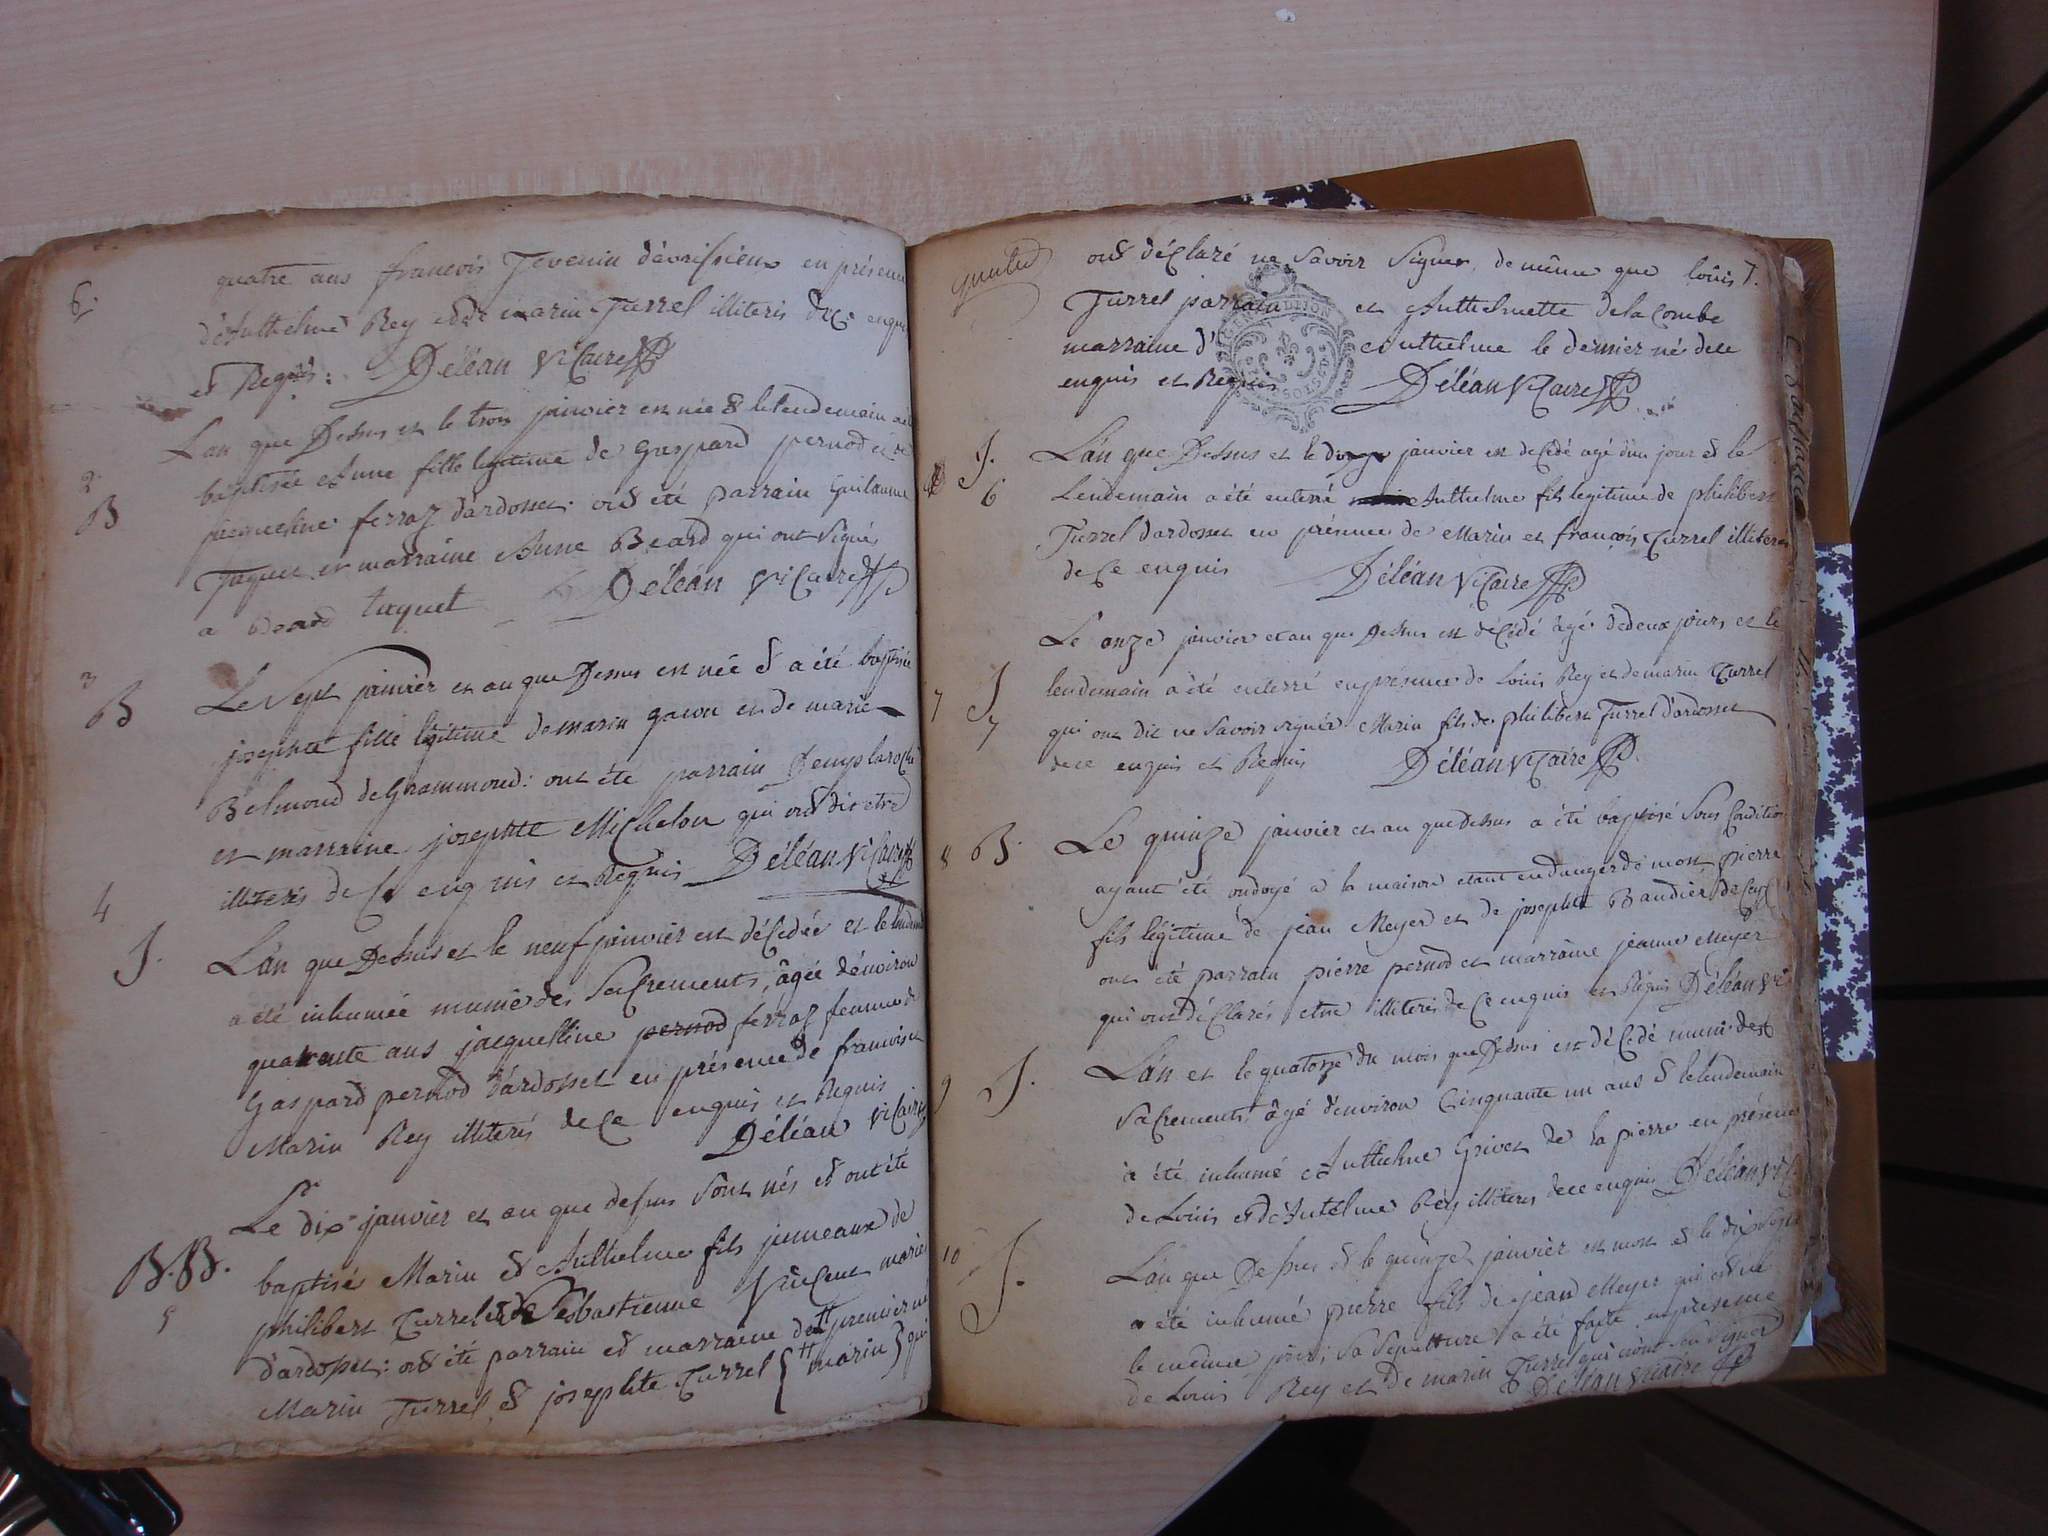 6.
quatre ans francois Jevenin d'évrisieux en présence
d'Authelme Rey et de marin Turrel illiteris de ce enquis
et Requis: Déléan Vicaire
2. B
L'an que Dessus et le trois janvier est née & le lendemain a été
baptisée Anne fille legitime de Gaspard pernod et de
jacqueline ferraz d'ardosset. ont été parrain Guilaume
Tuquet et marraine Anne Beard qui ont Signé
a Beard tuquet Déléan Vicaire
3 B
Le Sept janvier et an que Dessus est née & a été baptisée
josephte fille légitime de marin gacon et de marie
Belmond de Grammond: ont été parrain Denys laroche
et marraine josephte Michelon qui ont dit etre
illiteris de Ce enquis et Requis Déléan Vicaire
4 S.
L'an que Dessus et le neuf janvier est décédée et le lendemain
a été inhumée munie des Sacrements, âgée d'environ
quarente ans jacquelline pernod ferraz femme de
Gaspard pernod d'ardosset en présence de francois et
Marin Rey illiteris de Ce enquis et Requis
Déléan Vicaire
B.B. 5
Le dix janvier et an que dessus Sont nés et ont été
baptisés Marin et Anthelme fils jumeaux de
philibert Turrel et de Sebastienne Vincent mariés
d'ardosset: ont été parrain et marraine du premier né
Marin Turrel & josephte Turrel { marin } qui
7.
ont déClaré ne Savoir Signer, de même que loüis
Turrel parrain et Authelmette de la Combe
marraine d'Authelme le dernier né de ce
enquis et Requis Déléan Vicaire
GENERALITE DION
S. 6
L'an que Dessus et le janvier est deCédé agé d'un jour et le
Lendemain a été enterré Authelme fils legitime de philibert
Turrel d'ardosset en présence de Marin et francois Turrel illiteris
de Ce enquis Déléan Vicaire
7 S 7
Le onze janvier et an que Dessus est déCédé âgé de deux jours et le
lendemain a été enterré en présence de Loüis Rey et de marin Turrel
qui ont dit ne Savoir signer Marin fils de philibert Turrel d'ardosset
de ce enquis et Requis Déléan Vicaire
8 B.
Le quinze janvier et an que dessus a été baptisé Sous Condition
ayant été ondoyé a la maison etant en danger de mort pierre
fils légitime de jean Meyer et de josephte Baudier de Ceyz
ont été parrain pierre pernod et marraine jeanne Meyer
qui ont déClarés etre illiteris de Ce enquis et Requis Déléan Vic
9 S.
L'an et le quatorze du mois que Dessus est déCédé muni des
SaCrements âgé d'environ Cinquante un ans & le lendemain
a été inhumé Authelme Grivet de la pierre en présence
de Loüis et d'Antelme Rey illiteris de ce enquis Déléan Vic
10 S.
L'an que Dessus et le quinze janvier est mort et le dix Sept
a été inhumé pierre fils de jean Meyer qui est né
le même jour; Sa Sepulture a été faite en présence
de Louis Rey et de marin Turrel qui n'ont su Signer
Déléan Vicaire